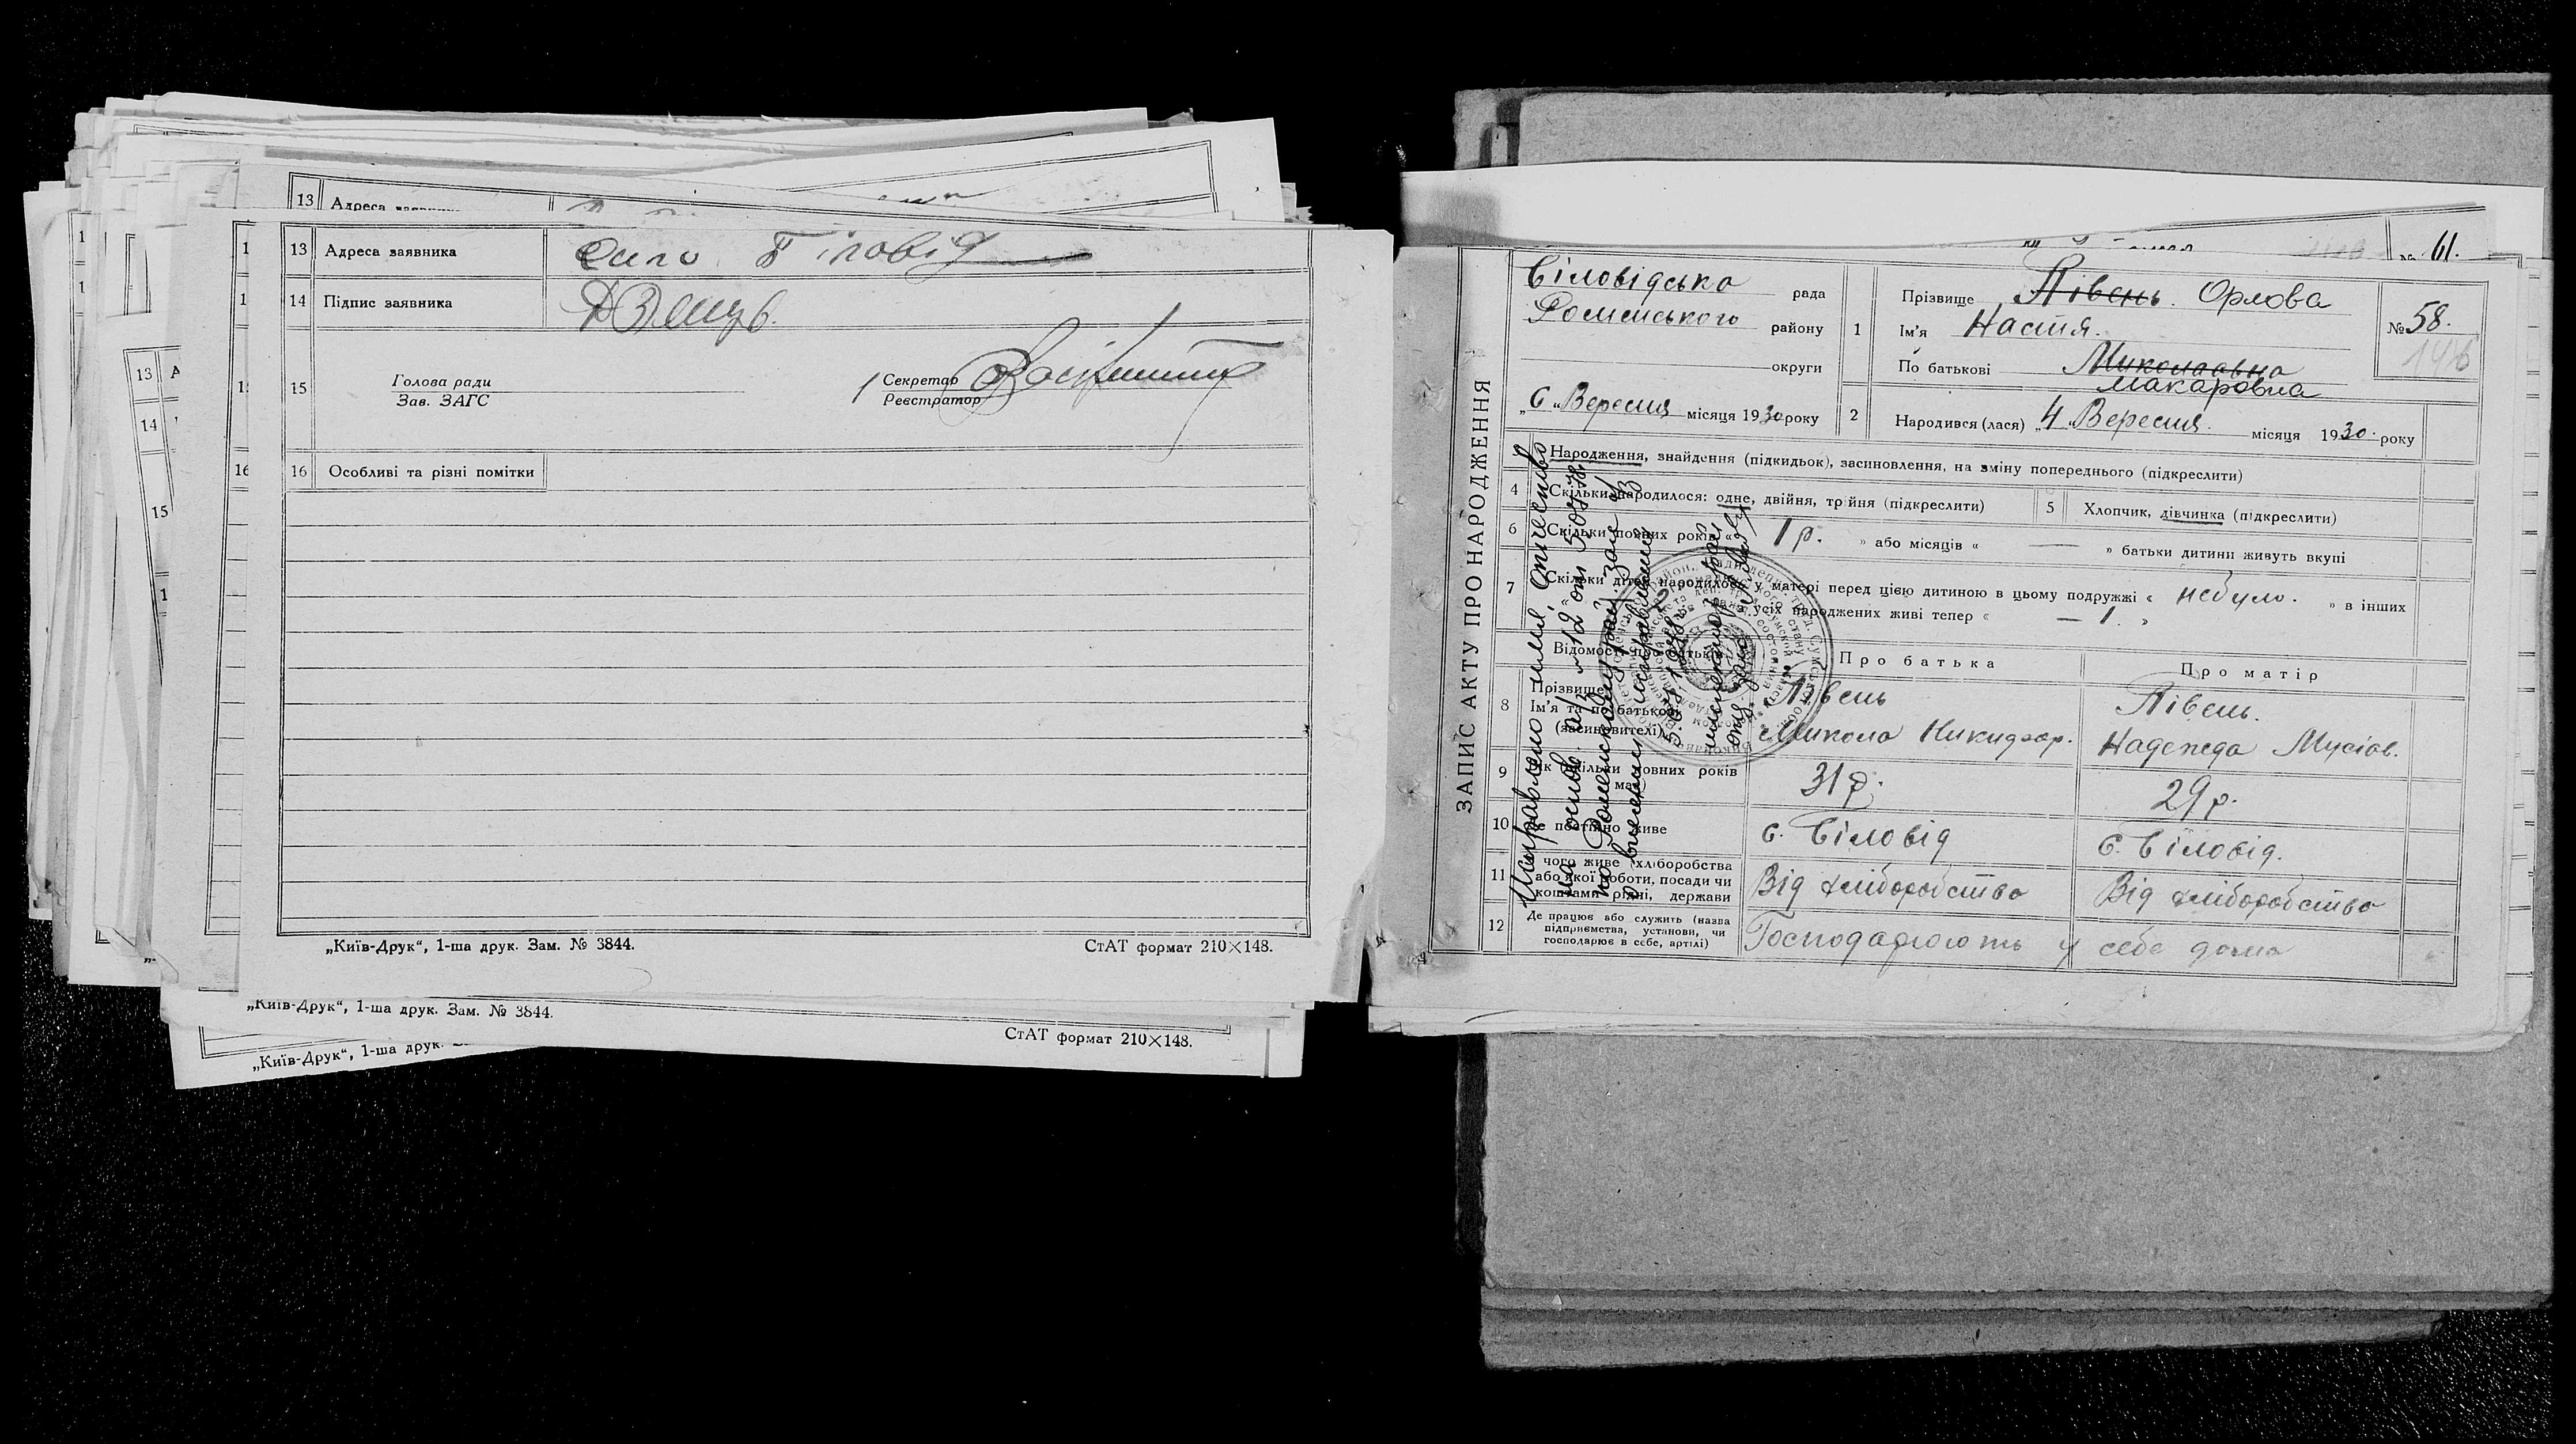 13 Адреса
13 Адреса заявника село Біловід
14 Підпис заявника
15 Голова ради
Зав. ЗАГС
Секретар
Реєстратор
16 Особливі та різні помітки
„Київ-Друк“, 1-ша друк. Зам. № 3844.
СтАТ формат 210×148.
„Київ-Друк“, 1-ша друк. Зам. № 3844.
СтАТ формат 210×148.
„Київ-Друк“, 1-ша друк.
№ 61.
ЗАПИС АКТУ ПРО НАРОДЖЕННЯ
Біловідська рада
Роменського району
округи
„6“ Вересня місяця 1930 року
1 Прізвище Півень. Орлова
Ім’я Настя.
По батькові Миколаевна
Макаровна
№ 58.
1476
2 Народився (лася) „4“ Вересня місяця 1930 року
3 Народження, знайдення (підкидьок), засиновлення, на зміну попереднього (підкреслити)
4 Скільки народилося: одне, двійня, трійня (підкреслити)
5 Хлопчик, дівчинка (підкреслити)
6 Скільки повних років « 1 р. » або місяців « — » батьки дитини живуть вкупі
7 Скільки дітей народилося у матері перед цією дитиною в цьому подружжі « небуло. » в інших
« усіх народжених живі тепер « — 1. »
Відомості про батьків
Про батька
Про матір
8 Прізвище
Ім’я та по батькові
(засиновителі)
Півень
Микола Никифор.
Півень.
Надежда Мусіов.
9 Як скільки повних років має
31 р.
29 р.
10 Де постійно живе
с. Біловід
с. Біловід.
11 чого живе (хліборобства
або якої роботи, посади чи
коштами рідні, держави
Від хліборобства
Від хліборобства
12 Де працює або служить (назва
підприємства, установи, чи
господарює в себе, артілі)
Господарюють у себе дома
Исправлено имя, отчество
на основ. а/з №12 от 5.04.78
по Роменскому рай. загс
о внесении исправлений